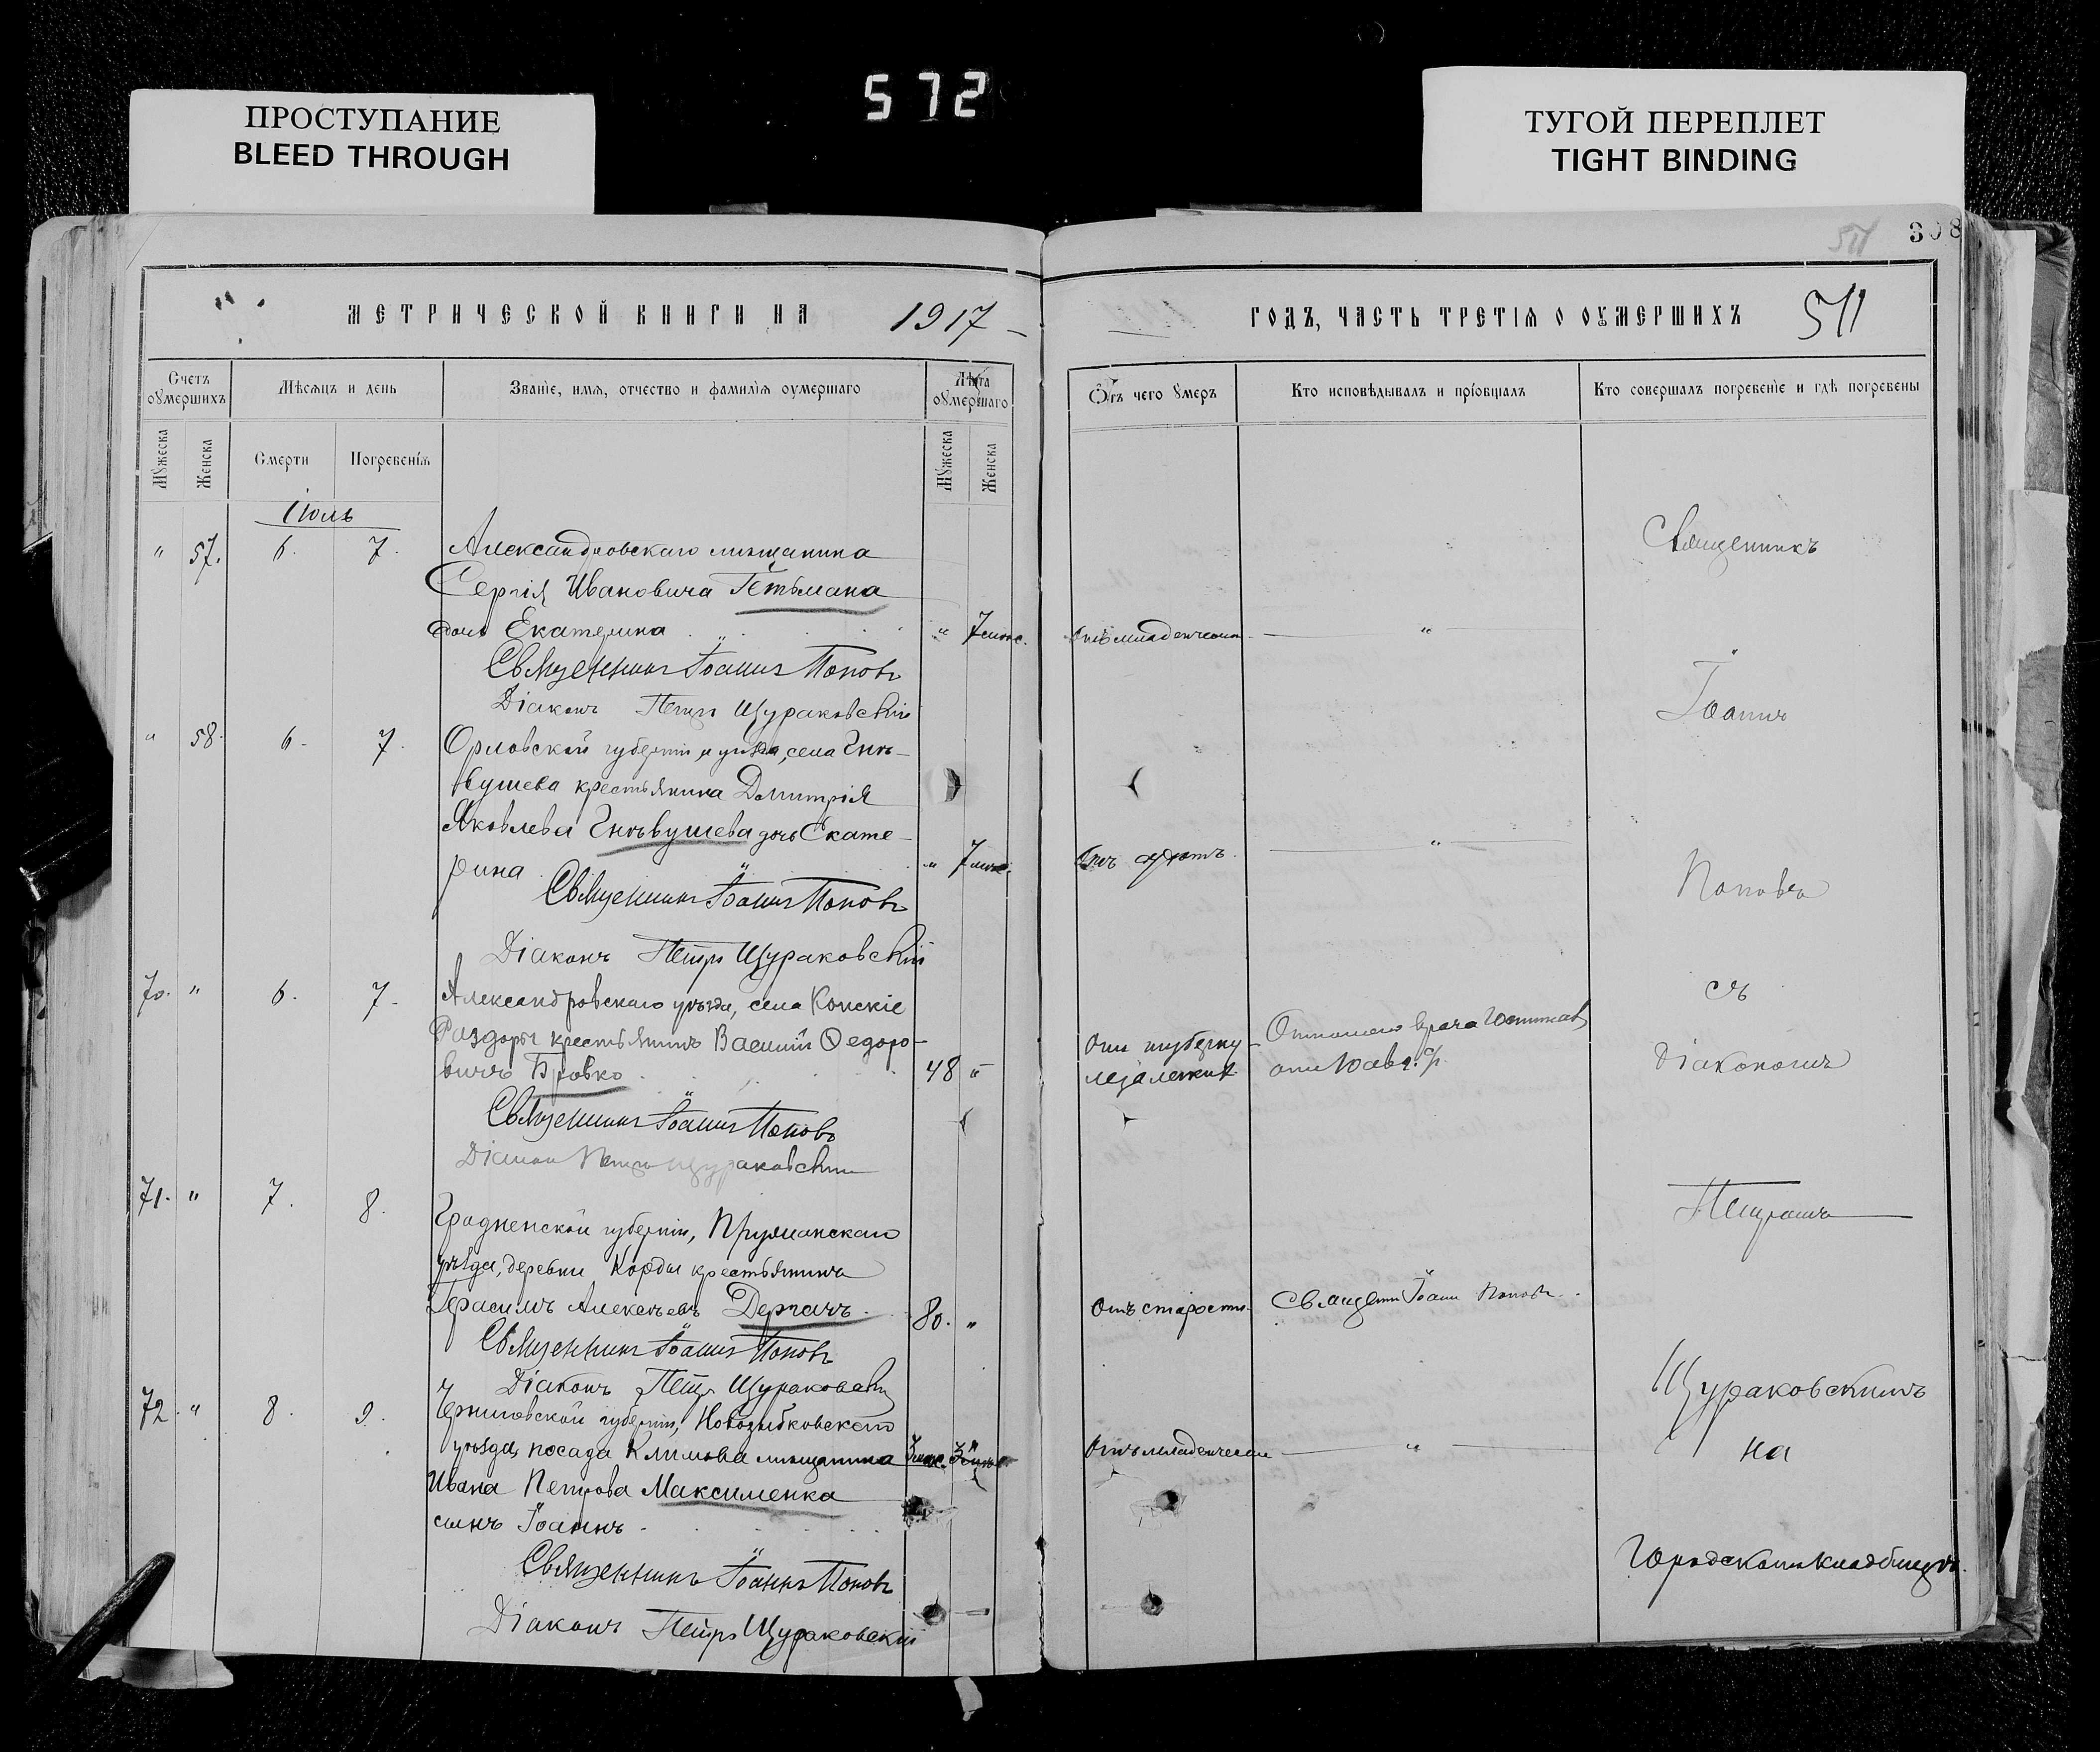 572
ПРОСТУПАНИЕ
BLEED THROUGH
ТУГОЙ ПЕРЕПЛЕТ
TIGHT BINDING
308
511
МЕТРИЧЕСКОЙ КНИГИ НА 1917
ГОДЪ, ЧАСТЬ ТРЕТІЯ О ОУМЕРШИХЪ 511
Счетъ оумершихъ
Мѣсяцъ и день
Званіе, имя, отчество и фамилія оумершаго
Лѣта оумершаго
Отъ чего умеръ
Кто исповѣдывалъ и пріобщалъ
Кто совершалъ погребеніе и гдѣ погребены
Мужеска
Женска
Смерти
Погребенія
Мужеска
Женска
Іюль
" 57. 6. 7. Александровскаго мѣщанина
Сергія Ивановича Гетьмана
дочь Екатерина " 7 мѣс. Отъ младенческой "
Священникъ Іоаннъ Поповъ
Діаконъ Петръ Щураковскій
" 58. 6. 7. Орловской губерніи и уѣзда, села Гнѣ-
вушева крестьянина Димитрія
Яковлева Гнѣвушева дочь Екате-
рина " 7 мѣс. Отъ "
Священникъ Іоаннъ Поповъ
Діаконъ Петръ Щураковскій
70. " 6. 7. Александровскаго уѣзда, села Конскіе
Раздоры крестьянинъ Василій Ѳедоро-
вичъ Бровко 48 " Отъ туберку-
леза легкихъ врача
Священникъ Іоаннъ Поповъ
Діаконъ Петръ Щураковскій
71. " 7. 8. Гродненской губерніи, Пружанскаго
уѣзда, деревни Корды крестьянинъ
Герасимъ Алексѣевъ Дергачъ 80. " Отъ старости Священн Іоаннъ Поповъ
Священникъ Іоаннъ Поповъ
Діаконъ Петръ Щураковскій
72. " 8. 9. Черниговской губерніи, Новозыбковскаго
уѣзда, посада Климова мѣщанина 3 мѣс. Отъ младенческой "
Ивана Петрова Максименка
сынъ Іоаннъ
Священникъ Іоаннъ Поповъ
Діаконъ Петръ Щураковскій
Священникъ
Іоаннъ
Поповъ
съ
діакономъ
Петромъ
Щураковскимъ
на
Городскомъ кладбищѣ